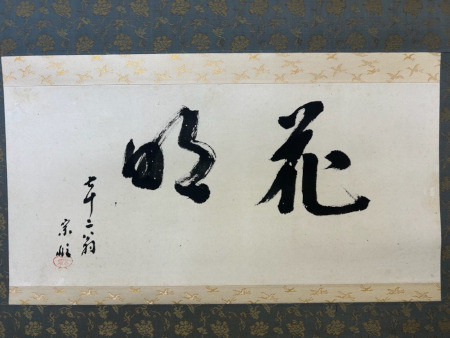 花明
七十二翁
宗